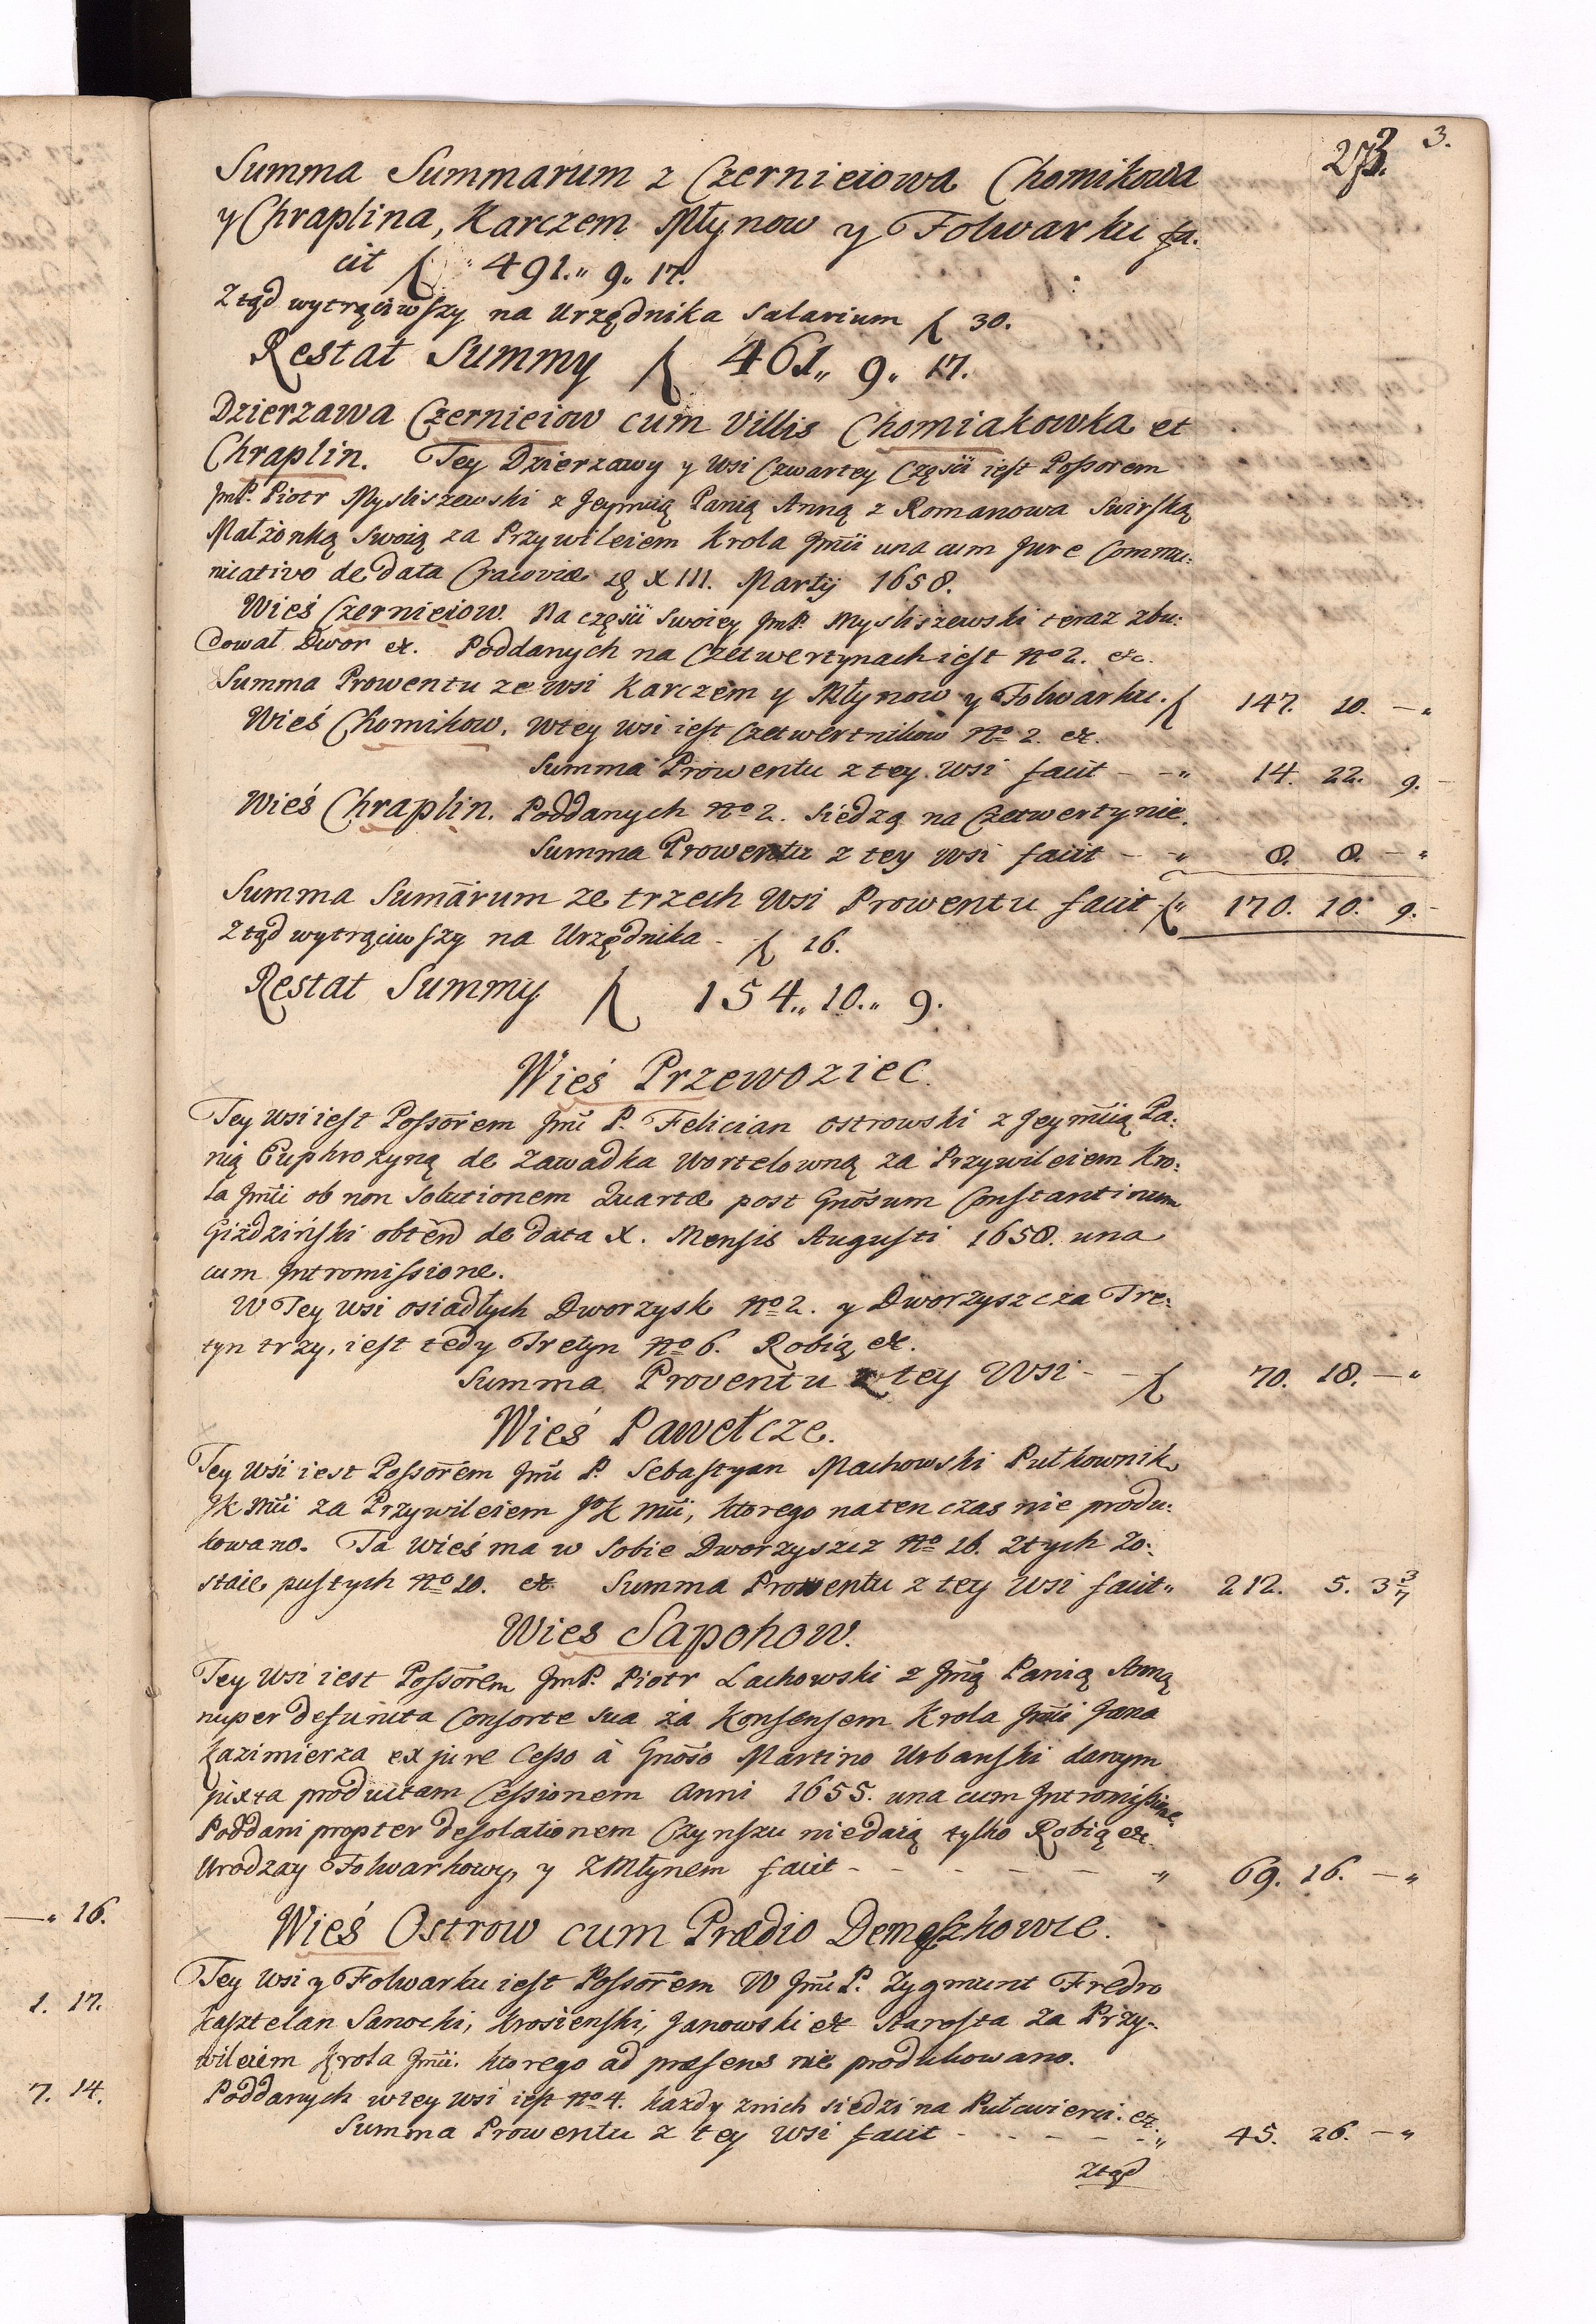 273. 3.
Summa Summarum z Czernieiowa Chomikowa
y Chraplina, Karczem Młynow y Folwarku fa-
cit f 491.„ 9„ 17.
Ztąd wytrąciwszy na Urzędnika Salarium f 30.
Restat Summy f 461„ 9„ 17.
Dzierzawa Czernieiow cum Villis Chomiakowka et
Chraplin. Tey Dzierzawy y Wsi Czwartey Części iest Possorem
JmP. Piotr Mysliszewski z Jeymcią Panią Anną z Romanowa Swirską
Małżonką Swoią za Przywileiem Krola Jmci una cum Jure Commu:
nicativo de data Cracoviæ XIII. Martij 1658.
Wieś Czernieiow. Na części swoiey JmP. Mysliszewski teraz zbu:
dował Dwor et. Poddanych na Czetwertynach iest No 2. etc.
Summa Prowentu ze wsi Karczem y Młynow y Folwarku. f 147. 10. — „
Wieś Chomikow. W tey wsi iest Czetwertnikow No 2. et.
Summa Prowentu z tey wsi facit - - „ 14. 22. 9. -
Wieś Chraplin. Poddanych No 2. siedzą na Czetwertynie.
Summa Prowentu z tey wsi facit - „ 8. 8. — „
Summa Sumārum ze trzech Wsi Prowentu facit f„ 170. 10. 9. -
Ztąd wytrąciwszy na Urzędnika - f 16.
Restat Summy f 154„ 10.„ 9.
Wieś Przewoziec.
Tey wsi iest Possorem Jmci P. Felician Ostrowski z Jeymcią Pa:
nią Euphrozyną de Zawadka Wortelowną za Przywileiem Kro:
la Jmci ob non Solutionem Quartæ post Gnosum Constantinum
Giżdziński obtend de data X. Mensis Augusti 1658. una
cum Intromissione.
W Tey wsi osiadłych Dworzysk No 2. y Dworzyszcza Tre:
tyn trzy, iest tedy Tretyn No 6. Robią et.
Summa Proventu z tey Wsi - - f 70. 18. — „
Wieś Pawełcze.
Tey Wsi iest Possorem Jmci P. Sebastyan Machowski Pułkownik
JK Mci za Przywileiem JoK Mci, ktorego na ten czas nie produ:
kowano. Ta Wieś ma w Sobie Dworzyszcz No 16. Ztych Zo:
staie pustych No 10. et. Summa Prowentu z tey Wsi facit „ 212. 5. 3 3/7
Wies Sapohow.
Tey Wsi iest Possorem JmP. Piotr Lachowski z Jmcią Panią Anną
nuper defuncta Consorte sua za Konsensem Krola Jmci Jana
Kazimierza ex jure Cesso à Gnoso Martino Urbanski danym
juxta productam Cessionem Anni 1655. una cum Intromissione
Poddani propter desolationem Czynszu niedaią tylko Robią etc.
Urodzay Folwarkowy, y Z Młynem facit - - - - - - „ 69. 16. — „
Wieś Ostrow cum Prædio Demeszkowce.
Tey Wsi y Folwarku iest Possorem W Jmci P. Zygmunt Fredro
Kasztelan Sanocki, Krosienski, Janowski et Starosta Za Przy-
wileiem Krola Jmci. ktorego ad præsens nie produkowano.
Poddanych w tey wsi iest No 4. każdy z nich siedzi na Pułcwierci. etc.
Summa Prowentu z tey wsi facit - - - - - „ 45. 26. — „
Ztąd
—„ 16.
1. 17.
7. 14.